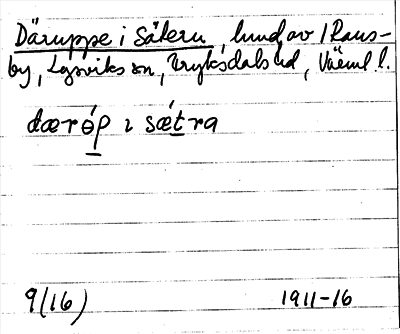 Däruppe i Sätern, lund av / Rans-
by, Lysviks sn, Fryksdals hd, Värml. l.
dæróp ı sǽtra
9(16) 1911-16